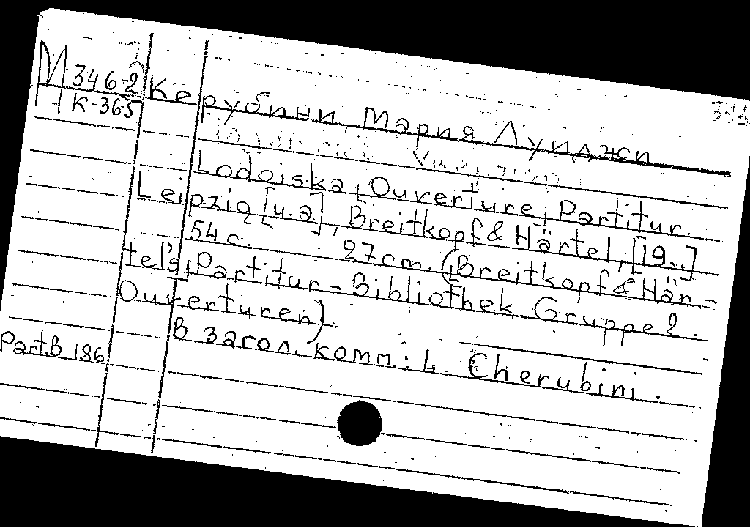 М 346-2
К-365
Керубини Мария Луиджи
Lodoiska, Ouverture, Partitur.
Leipzig [u.a], Breitkopf & Härtel, [19..]
54 с. 27 cm. (Breitkopf & Här-
tel's Partitur-Bibliothek Gruppe 2.
Ouverturen).
В загол. комп.: L. Cherubini.
Part.B 186